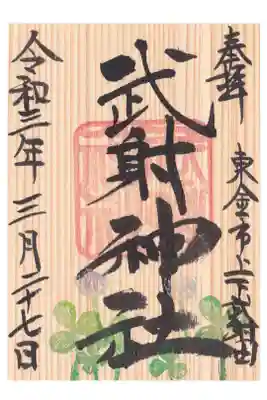 奉拝
東金市上下武射田
武射神社
令和三年 三月二十七日